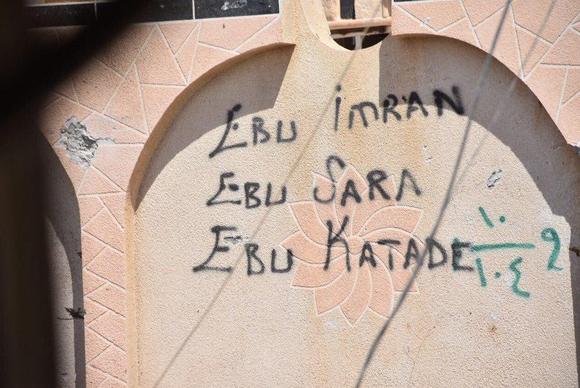 EBU İMRAN
EBU SARA
EBU KATADE
١٠
١٠٤